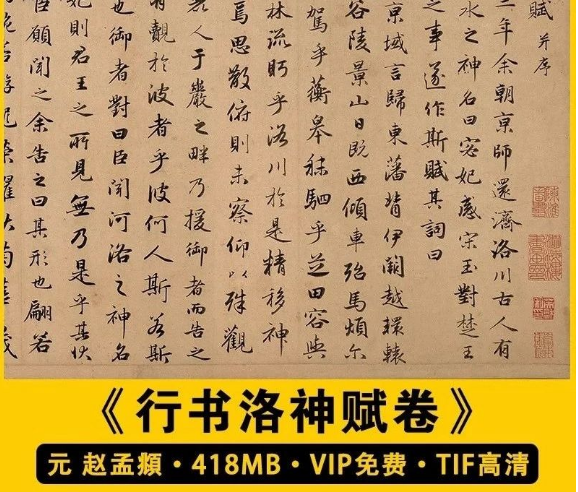 賦 并序
三年余朝京師還濟洛川古人有
水之神名曰宓妃感宋玉對楚王
之事遂作斯賦其詞曰
京域言歸東藩背伊闕越轘轅
谷陵景山日既西傾車殆馬煩尔
駕乎蘅皋秣駟乎芝田容與
林流眄乎洛川於是精移神
焉思散俯則未察仰以殊觀
人于巖之畔乃援御者而告之
有觀於彼者乎彼何人斯若斯
也御者對曰臣聞河洛之神名
妃則君王之所見無乃是乎其状
臣願聞之余告之曰其形也翩若
游龍榮耀秋菊華茂
《行书洛神赋卷》
元 赵孟頫·418MB·VIP免费·TIF高清